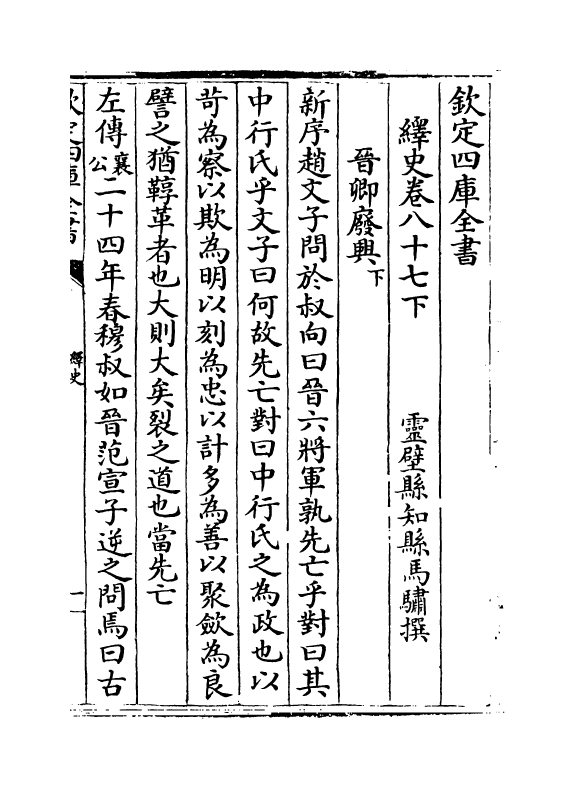 欽定四庫全書
繹史卷八十七下
靈壁縣知縣馬驌撰
晉卿廢興下
新序趙文子問於叔向曰晉六將軍孰先亡乎對曰其
中行氏乎文子曰何故先亡對曰中行氏之為政也以
苛為察以欺為明以刻為忠以計多為善以聚斂為良
譬之猶鞟革者也大則大矣裂之道也當先亡
左傳襄公二十四年春穆叔如晉范宣子逆之問焉曰古
欽定四庫全書
繹史
一